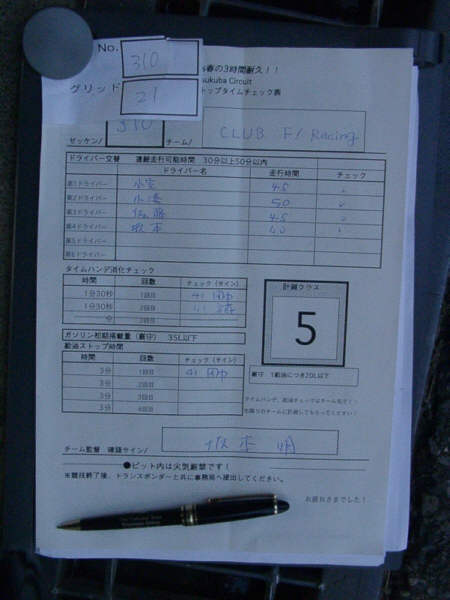 No. 310
グリッド 21
春の3時間耐久！！
sukuba Circuit
トップタイムチェック表
ゼッケン/ 310 チーム/ CLUB F/ Racing
ドライバー交替 連続走行可能時間 30分以上50分以内
ドライバー名 走行時間 チェック
第1ドライバー 45
第2ドライバー 50
第3ドライバー 佐藤 45
第4ドライバー 40
第5ドライバー
第6ドライバー
タイムハンデ消化チェック
時間 回数 チェック（サイン）
1分30秒 1回目
1分30秒 2回目
分 3回目
計測クラス
5
ガソリン初期搭載量（厳守） 35L以下
給油ストップ時間
時間 回数 チェック（サイン）
3分 1回目
3分 2回目
3分 3回目
3分 4回目
厳守 1給油につき20L以下
タイムハンデ、給油チェックはチーム毎で！！
お隣りのチームに計測してもらってください！
チーム監督 確認サイン/
●ピット内は火気厳禁です！
※競技終了後、トランスポンダーと共に事務局へ提出してください。
お疲れさまでした！